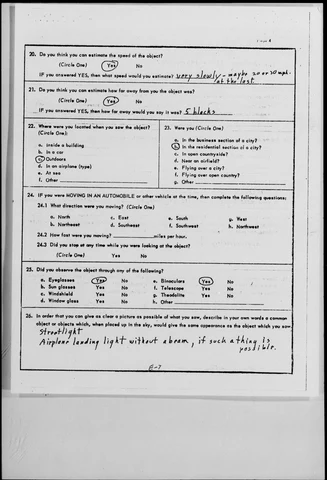 20. Do you think you can estimate the speed of the object?
(Circle One) Yes No
IF you answered YES, then what speed would you estimate? very slowly - maybe 20 or 30 mph.
at the last
21. Do you think you can estimate how far away from you the object was?
(Circle One) Yes No
IF you answered YES, then how far away would you say it was? 5 blocks
22. Where were you located when you saw the object?
(Circle One):
a. Inside a building
b. In a car
c. Outdoors
d. In an airplane (type)
e. At sea
f. Other
23. Were you (Circle One)
a. In the business section of a city?
b. In the residential section of a city?
c. In open countryside?
d. Near an airfield?
e. Flying over a city?
f. Flying over open country?
g. Other
24. IF you were MOVING IN AN AUTOMOBILE or other vehicle at the time, then complete the following questions:
24.1 What direction were you moving? (Circle One)
a. North c. East e. South g. West
b. Northeast d. Southeast f. Southwest h. Northwest
24.2 How fast were you moving? miles per hour.
24.3 Did you stop at any time while you were looking at the object?
(Circle One) Yes No
25. Did you observe the object through any of the following?
a. Eyeglasses Yes No e. Binoculars Yes No
b. Sun glasses Yes No f. Telescope Yes No
c. Windshield Yes No g. Theodolite Yes No
d. Window glass Yes No h. Other
26. In order that you can give as clear a picture as possible of what you saw, describe in your own words a common
object or objects which, when placed up in the sky, would give the same appearance as the object which you saw.
Streetlight
Airplane landing light without a beam, if such a thing is
possible.